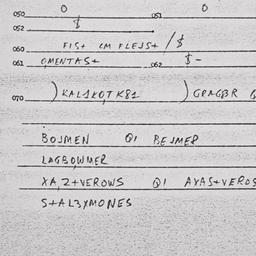 O O
050 051
052 $
060 FIS+ CM FLEJS+ / $
061 OMENTAS+ 062 $-
070 ) KAL1KOTK81 ) GRAGB3R
BOJMEN QI BEJMEP
LAGBOWMER
XA,2+VEROWS QI AYAS+VEROS
S+AL3YMONES